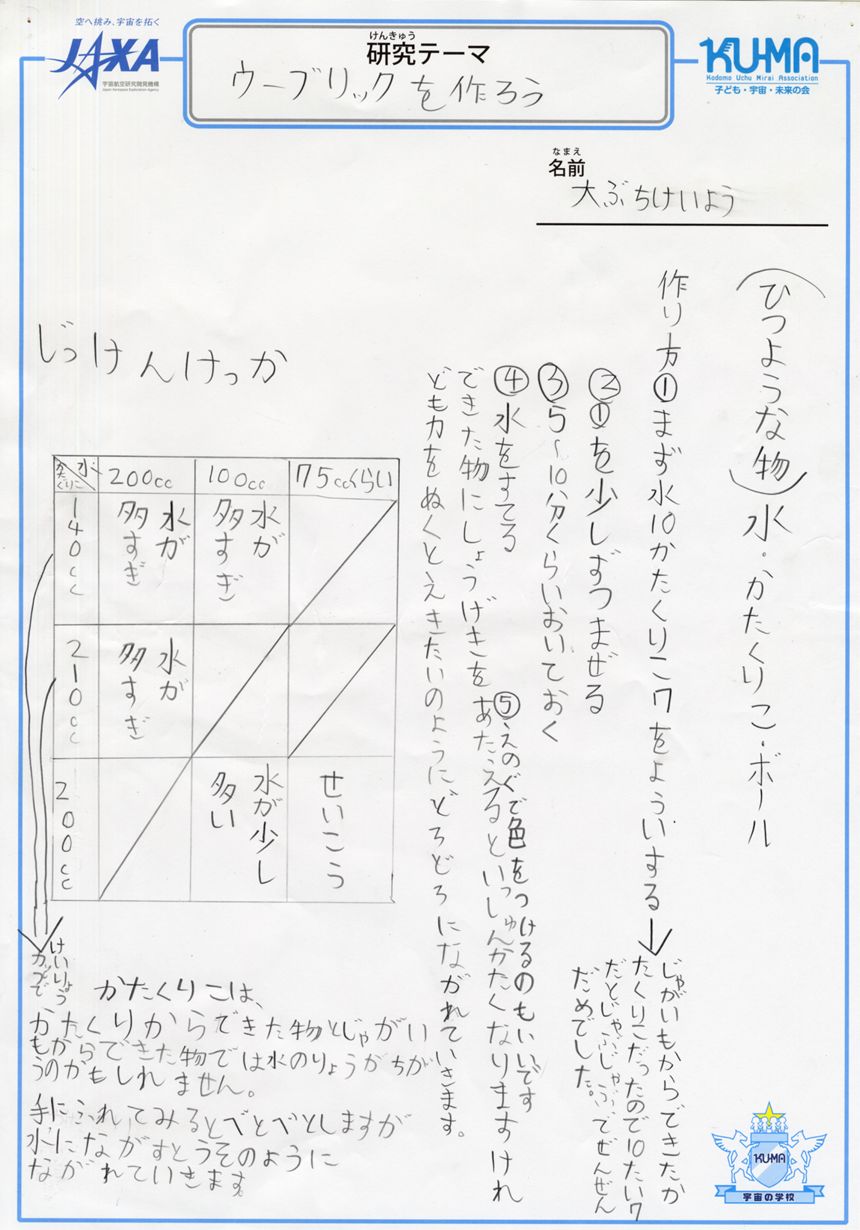 空へ挑み、宇宙を拓く
JAXA
宇宙航空研究開発機構
Japan Aerospace Exploration Agency
けんきゅう
研究テーマ
ウーブリックを作ろう
KU-MA
Kodomo Uchu Mirai Association
子ども・宇宙・未来の会
なまえ
名前
大ぶちけいよう
(ひつような物)水・かたくりこ・ボール
作り方①まず水10かたくりこ7をよういする
→じゃがいもからできたか
たくりこだったので10たい7
だとじゃぶじゃぶでぜんぜん
だめでした。
②①を少しずつまぜる
③5~10分くらいおいておく
④水をすてる
⑤えのぐで色をつけるのもいいです
できた物にしょうげきをあたえるといっしゅんかたくなりますけれ
ども力をぬくとえきたいのようにどろどろにながれていきます。
じっけんけっか
水
かたくりこ
200cc
100cc
75ccくらい
140cc
水が多すぎ
水が多すぎ
210cc
水が多すぎ
200cc
水が少し多い
せいこう
けいりょうカップで
かたくりこは、
かたくりからできた物とじゃがい
もからできた物では水のりょうがちが
うのかもしれません。
手にふれてみるとべとべとしますが
水にながすとうそのように
ながれていきます。
KU-MA
宇宙の学校